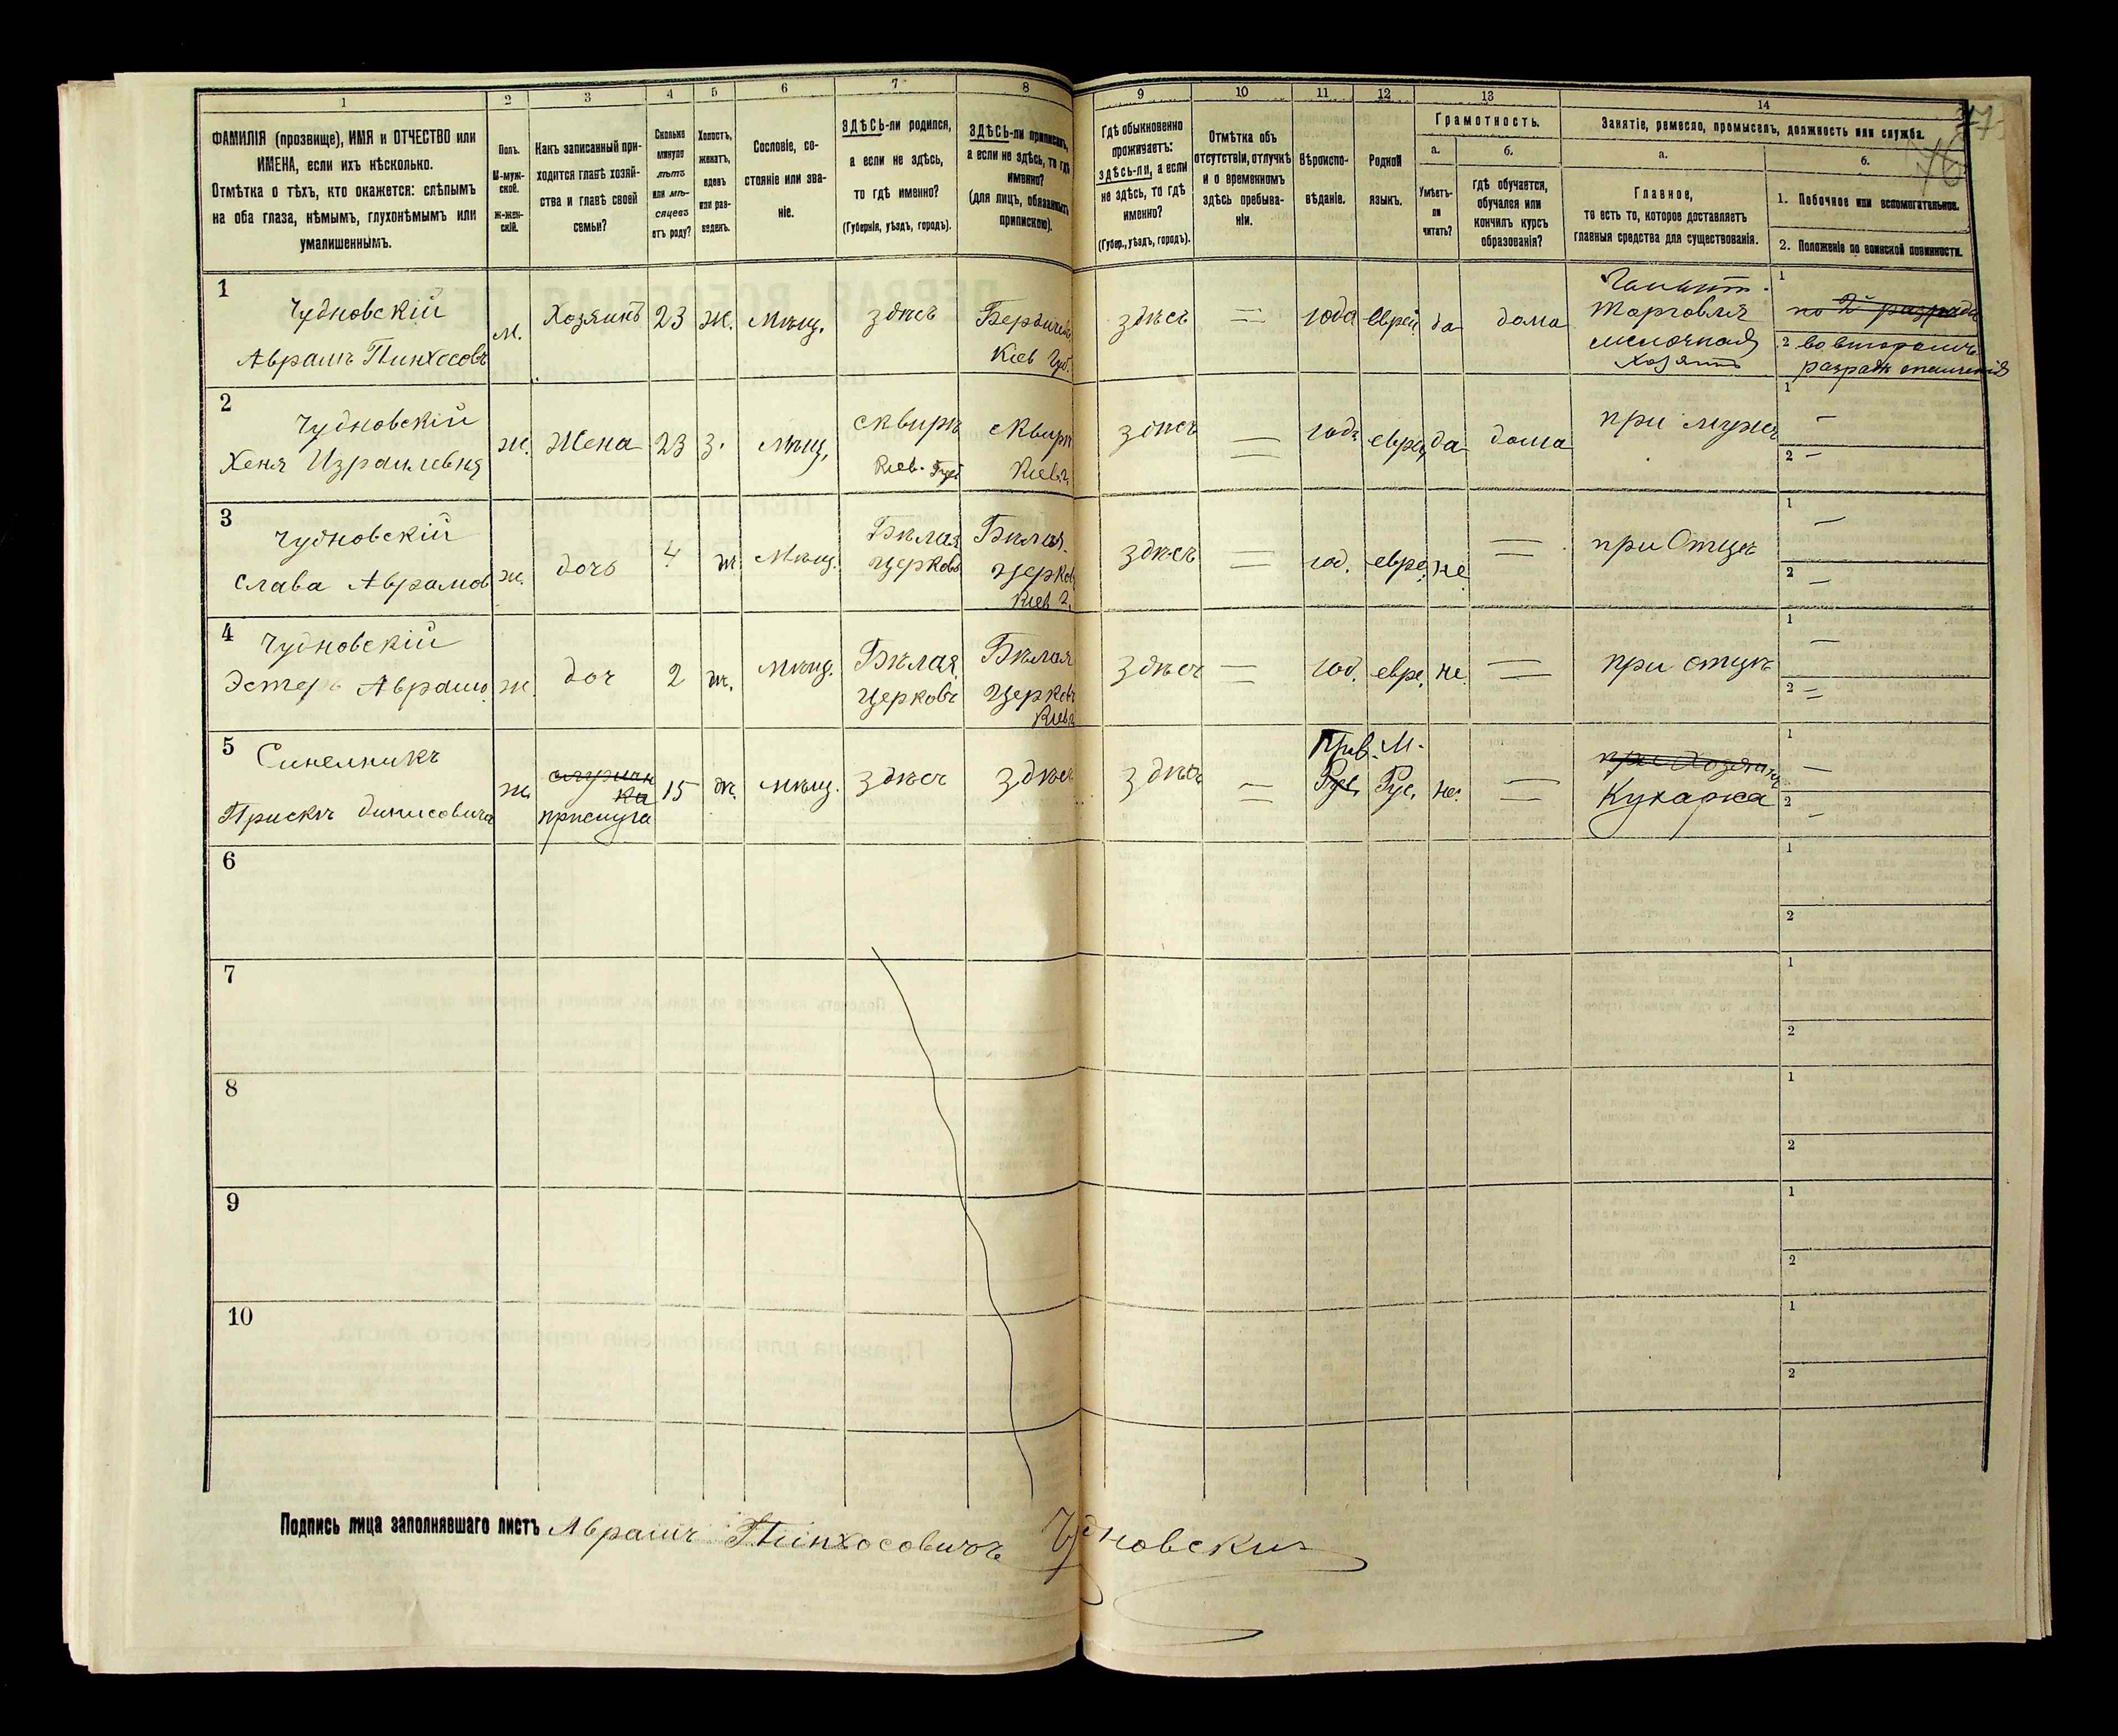 1 2 3 4 5 6 7 8
ФАМИЛІЯ (прозвище), ИМЯ и ОТЧЕСТВО или
ИМЕНА, если ихъ нѣсколько.
Отмѣтка о тѣхъ, кто окажется: слѣпымъ
на оба глаза, нѣмымъ, глухонѣмымъ или
умалишеннымъ.
Полъ.
М-муж-
ской.
Ж-жен-
скій.
Какъ записанный при-
ходится главѣ хозяй-
ства и главѣ своей
семьи?
Сколько
минуло
лѣтъ
или мѣ-
сяцевъ
отъ роду?
Холостъ,
женатъ,
вдовъ
или раз-
веденъ.
Сословіе, со-
стояніе или зва-
ніе.
ЗДѢСЬ-ли родился,
а если не здѣсь,
то гдѣ именно?
(Губернія, уѣздъ, городъ).
ЗДѢСЬ-ли приписанъ,
а если не здѣсь, то гдѣ
именно?
(для лицъ, обязанныхъ
припискою).
9 10 11 12 13 14
Гдѣ обыкновенно
проживаетъ:
здѣсь-ли, а если
не здѣсь, то гдѣ
именно?
(Губер., уѣздъ, городъ).
Отмѣтка объ
отсутствіи, отлучкѣ
и о временномъ
здѣсь пребыва-
ніи.
Вѣроиспо-
вѣданіе.
Родной
языкъ.
Грамотность.
а. б.
Умѣетъ-
ли
читать?
Гдѣ обучается,
обучался или
кончилъ курсъ
образованія?
Занятіе, ремесло, промыселъ, должность или служба.
а. б.
Главное,
то есть то, которое доставляетъ
главныя средства для существованія.
1. Побочное или вспомогательное.
2. Положеніе по воинской повинности.
76
1
Чудновскій
Аврамъ Пинхосовъ
м.
Хозяинъ
23
Ж.
Мѣщ.
здѣсъ
Бердичевъ
Кіев Губ.
здѣсъ
=
іюда
Еврей
да
дома
Торговля
мелочная
хозяинъ
1 по 2й разряда
2 во второмъ
разрядѣ ополченія
2
Чудновскій
Хеня Израилевня
ж.
Жена
23
З.
Мѣщ,
сквиръ
Кіев. Губ
сквиръ
Кіев.г.
здѣсъ
=
іюдъ
евре,
да
дома
при мужѣ
1 –
2 –
3
Чудновскій
Слава Аврамов
ж.
дочь
4
ж
Мѣщ.
Бѣлая
Церковъ
Бѣлая
Церков
Кіев г.
здѣсъ
=
іюд.
евре.
не
=
при Отцѣ
1 –
2 –
4
Чудновскій
Эстеръ Аврамо.
ж.
доч
2
ж.
мѣщ.
Бѣлая
Церковъ
Бѣлая
Церковъ
Кіев г
здѣсъ
=
іюд.
евре.
не.
=
при отцѣ
1 –
2 =
5
Синелникъ
Прискъ Динисовича
ж.
служан
ка
прислуга
15
ж.
мѣщ.
здѣсъ
здѣсъ
здѣсъ
=
Прав.
Рус.
М.
Рус.
не.
=
при Хозяинѣ
Кухарка
1 –
2 –
6
1
2
7
1
2
8
1
2
9
1
2
10
1
2
Подпись лица заполнявшаго листъ Аврамъ Пинхосовичъ Чудновскій